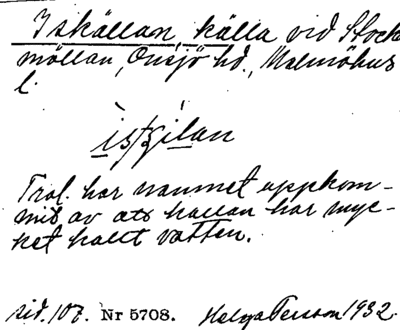 Iskällan, källa vid Stock
möllan, Onsjö hd., Malmöhus
l.
Trol. har namnet uppkom-
mit av att källan har myc-
ket kallt vatten.
sid. 107. Nr 5708. Helga Persson 1932.